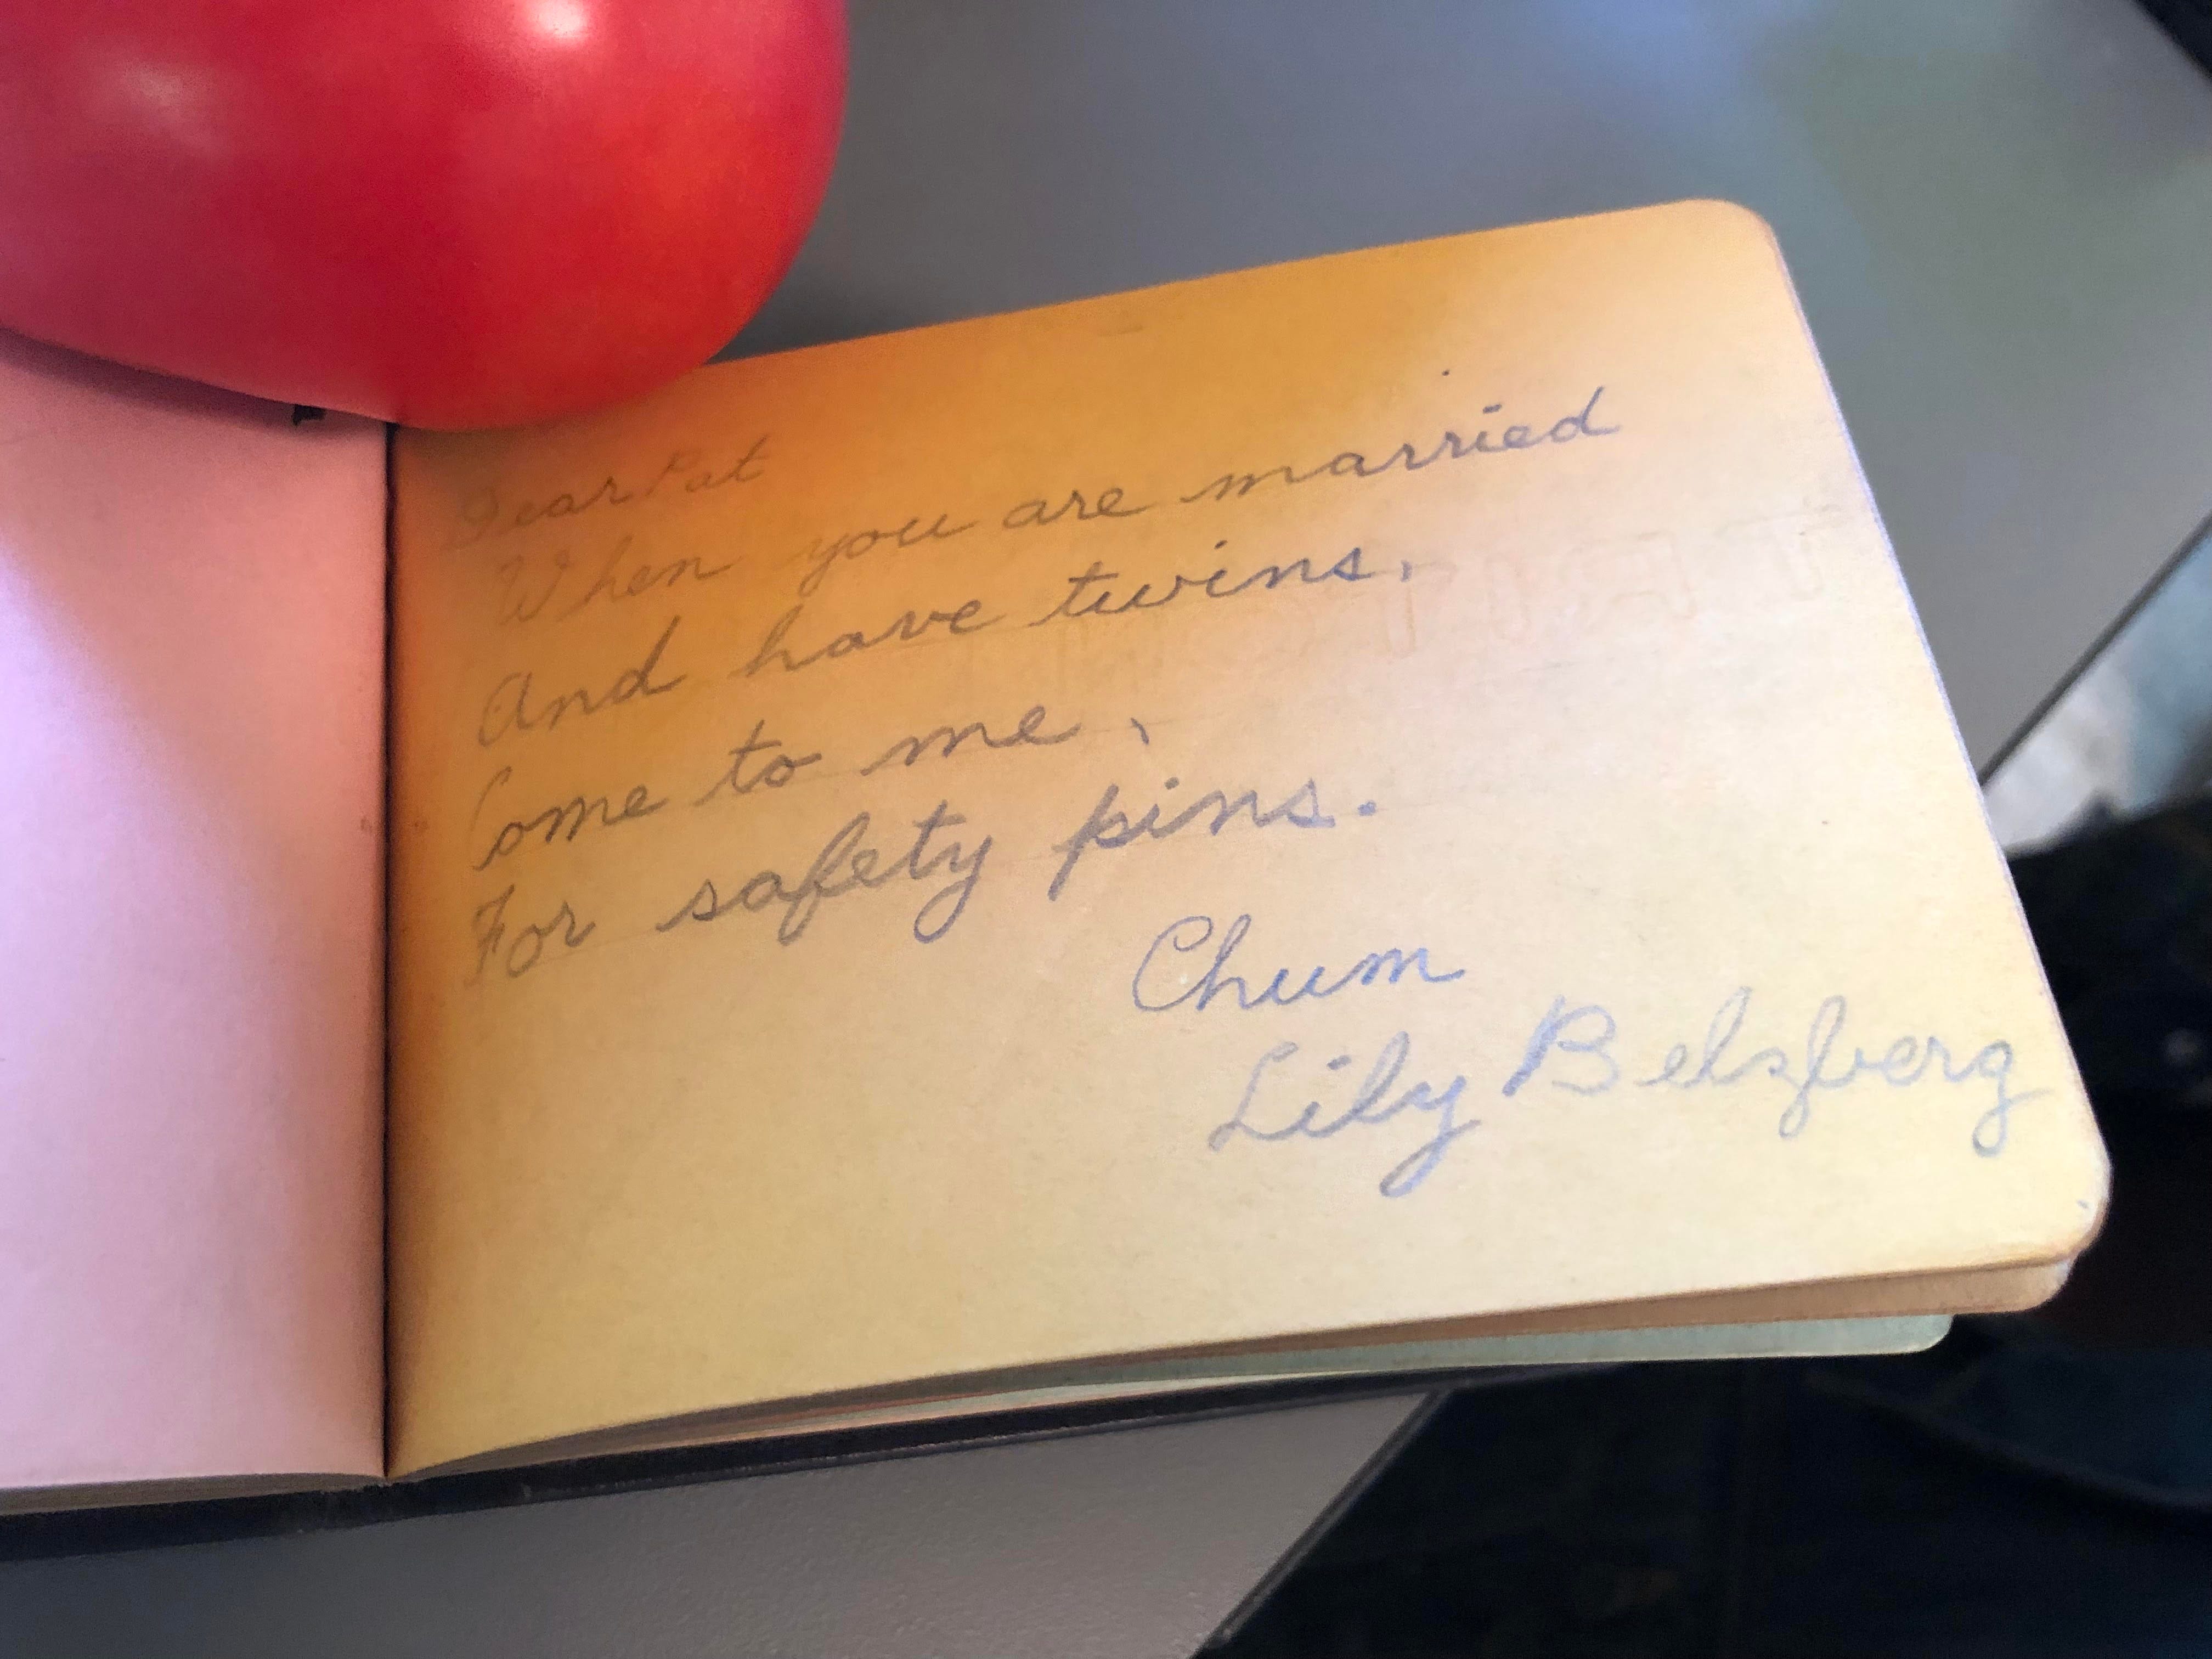 Dear Pat
When you are married
And have twins,
Come to me,
For safety pins.
Chum
Lily Belzberg